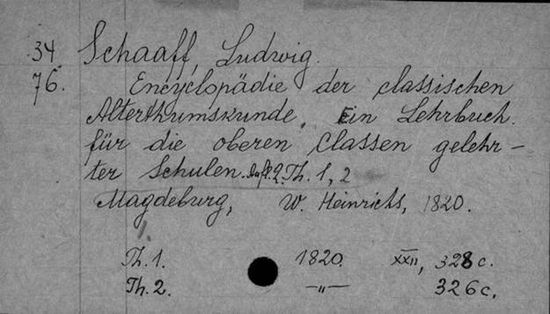 34. Schaaff, Ludwig.
76. Encyclopädie der classischen
Alterthumskunde. Ein Lehrbuch
für die oberen Classen gelehr-
ter Schulen. Th. 1, 2
Magdeburg, W. Heinrichs, 1820.
Th. 1. 1820. XXII, 328 c.
Th. 2. —„— 326 c.